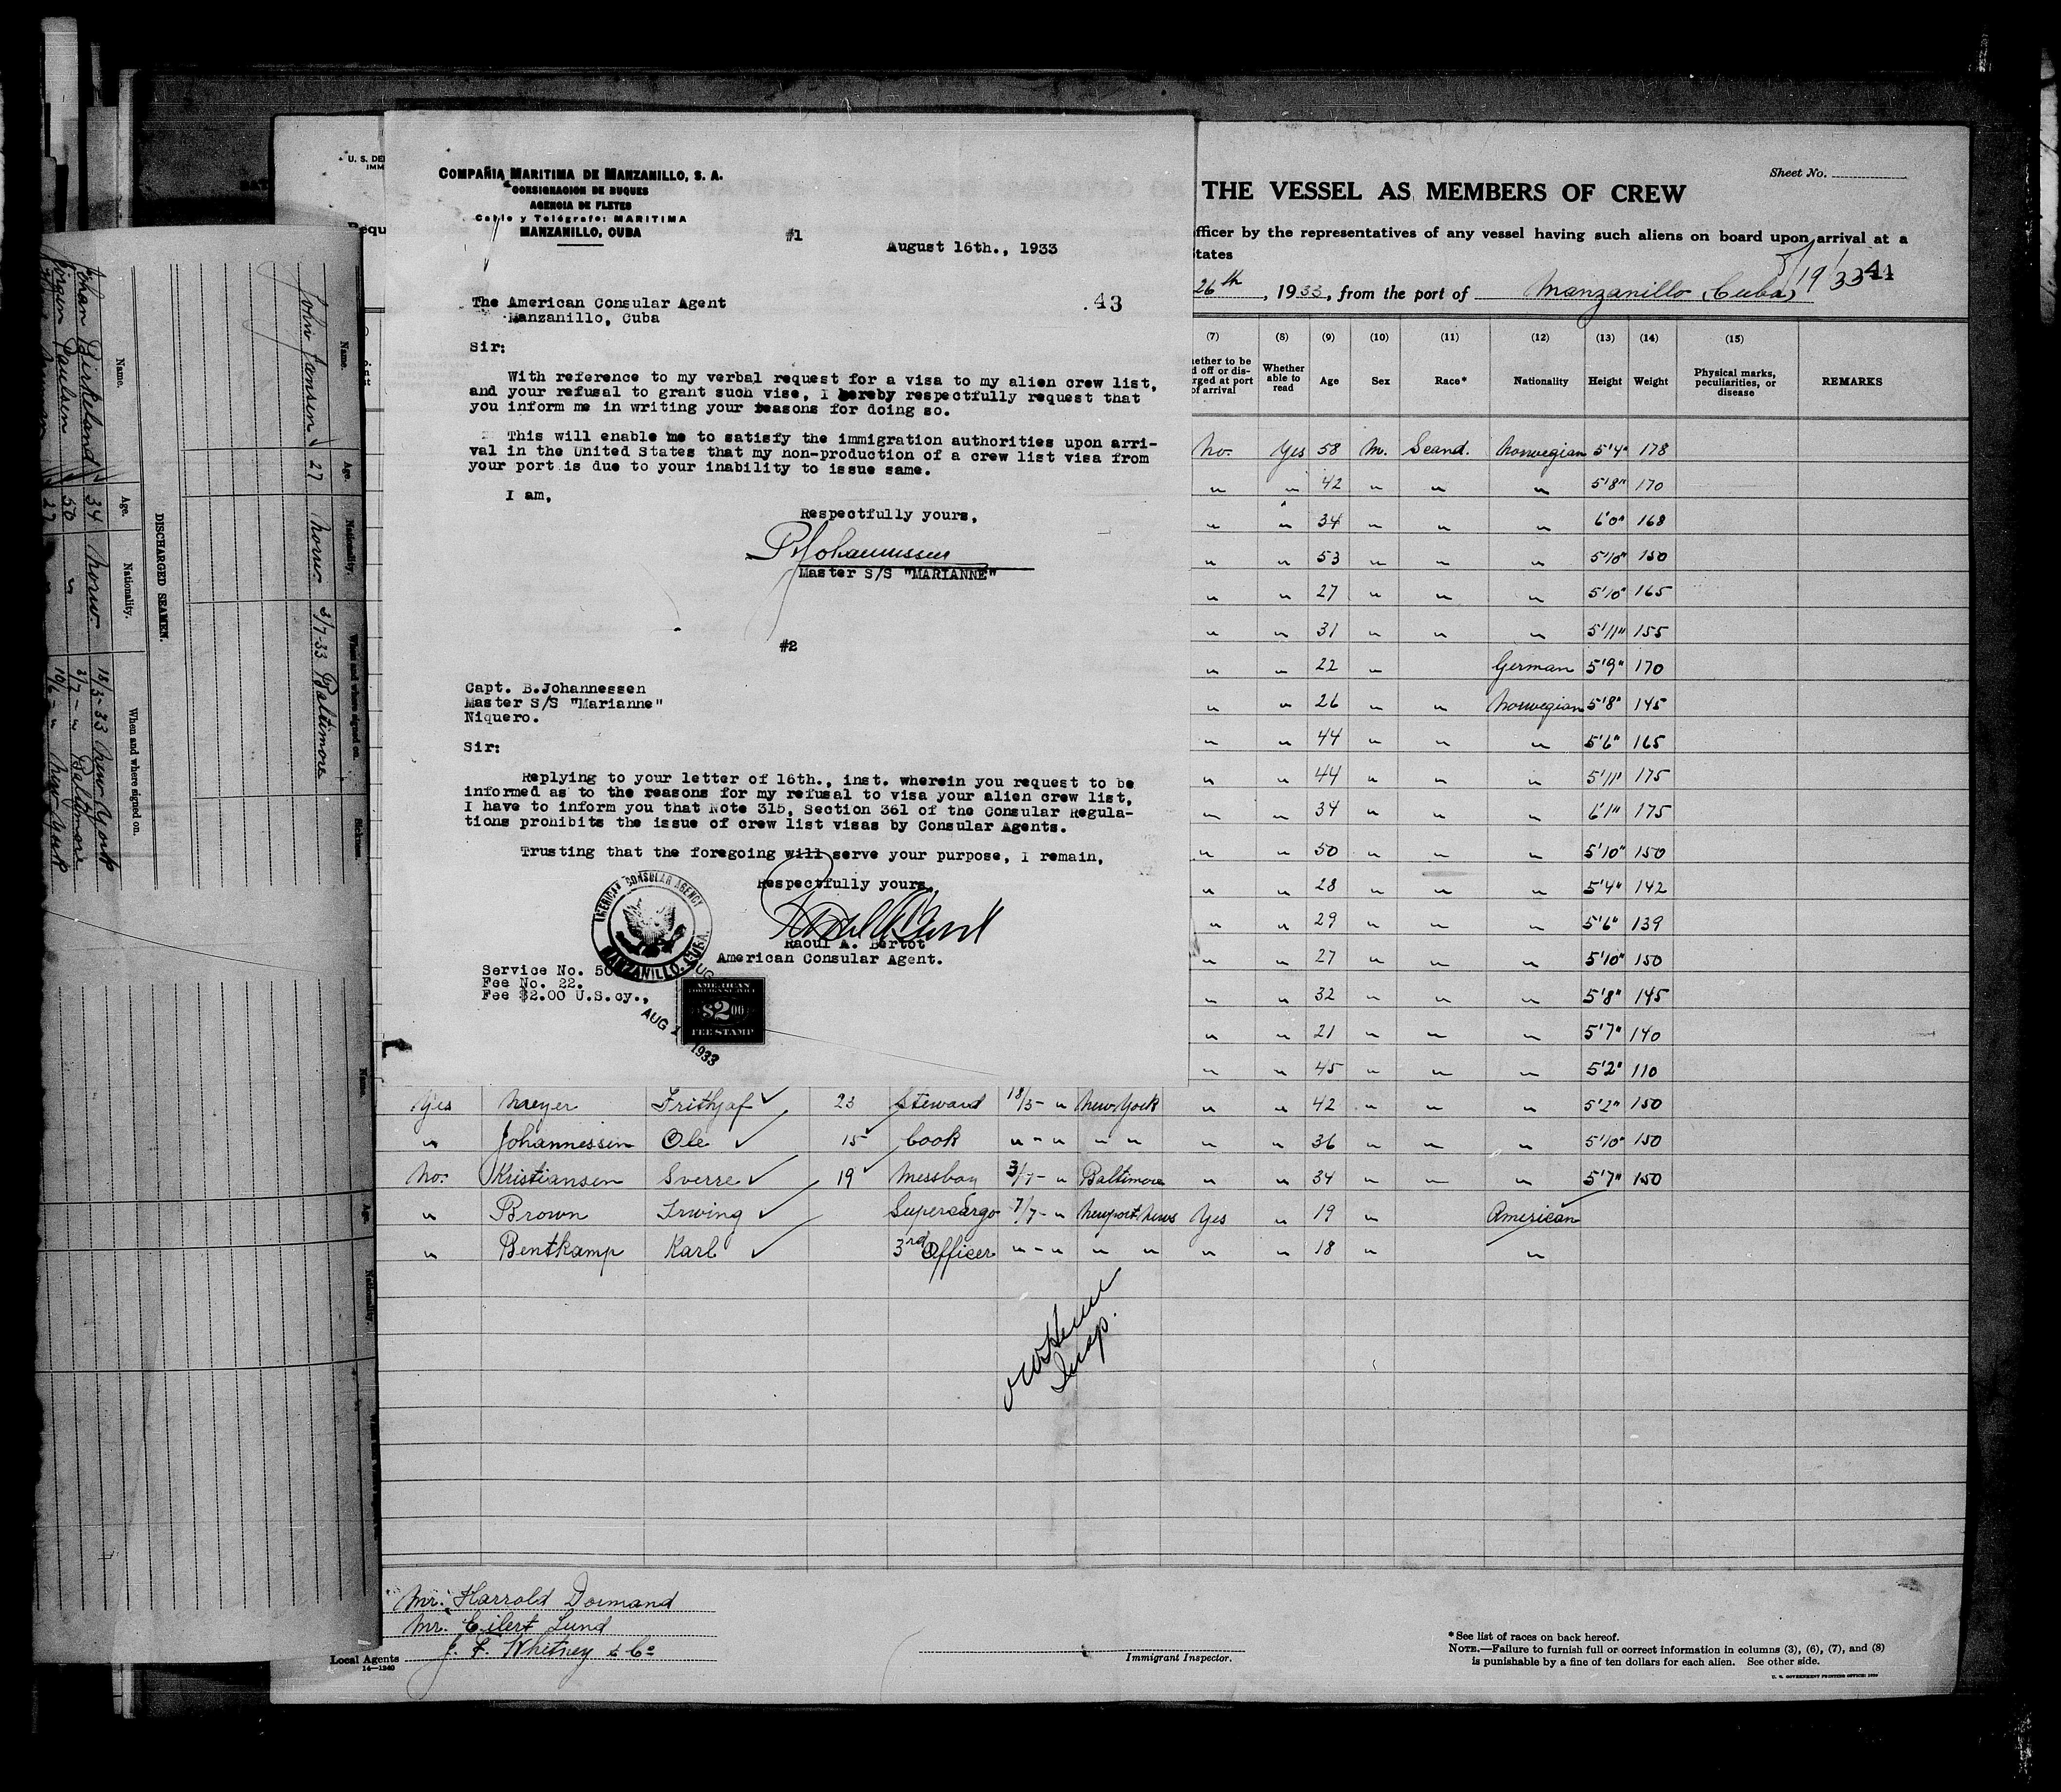 COMPAÑIA MARITIMA DE MANZANILLO, S. A.
CONSIGNACION DE BUQUES
AGENCIA DE FLETES
Cable y Telégrafo: MARITIMA
MANZANILLO, CUBA
#1
August 16th., 1933
43
The American Consular Agent
Manzanillo, Cuba
Sir:
With reference to my verbal request for a visa to my alien crew list,
and your refusal to grant such vise, I hereby respectfully request that
you inform me in writing your reasons for doing so.
This will enable me to satisfy the immigration authorities upon arri-
val in the United States that my non-production of a crew list visa from
your port is due to your inability to issue same.
I am,
Respectfully yours,
Johannessen
Master S/S "MARIANNE"
#2
Capt. B.Johannessen
Master S/S "Marianne"
Niquero.
Sir:
Replying to your letter of 16th., inst. wherein you request to be
informed as to the reasons for my refusal to visa your alien crew list,
I have to inform you that Note 315, Section 361 of the Consular Regula-
tions prohibits the issue of crew list visas by Consular Agents.
Trusting that the foregoing will serve your purpose, I remain,
Respectfully yours,
Raoul A. Bertot
American Consular Agent.
AMERICAN CONSULAR AGENCY
MANZANILLO, CUBA.
Service No. 50
Fee No. 22.
Fee $2.00 U.S.cy.,
AMERICAN
FOREIGN SERVICE
$2.00
FEE STAMP
AUG 1
1933
Sheet No.
THE VESSEL AS MEMBERS OF CREW
fficer by the representatives of any vessel having such aliens on board upon arrival at a
tates
26th, 1933, from the port of Manzanillo (Cuba)
8/19/33
44
(7) (8) (9) (10) (11) (12) (13) (14) (15)
hether to be
d off or dis-
rged at port
of arrival
Whether
able to
read
Age Sex Race* Nationality Height Weight
Physical marks,
peculiarities, or
disease
REMARKS
No. Yes 58 M. Scand. Norwegian 5'4" 178
" " 42 " " " 5'8" 170
" " 34 " " " 6'0" 168
" " 53 " " " 5'10" 150
" " 27 " " " 5'10" 165
" " 31 " " " 5'11" 155
" " 22 " German 5'9" 170
" " 26 " " Norwegian 5'8" 145
" " 44 " " " 5'6" 165
" " 44 " " " 5'11" 175
" " 34 " " " 6'1" 175
" " 50 " " " 5'10" 150
" " 28 " " " 5'4" 142
" " 29 " " " 5'6" 139
" " 27 " " " 5'10" 150
" " 32 " " " 5'8" 145
" " 21 " " " 5'7" 140
" " 45 " " " 5'2" 110
Yes Meyer Frithjof 23 Steward 18/3- " New York " " 42 " " " 5'2" 150
" Johannessen Ole 15 Cook " - " " " " " 36 " " " 5'10" 150
No. Kristiansen Sverre 19 Messboy 3/7- " Baltimore " " 34 " " " 5'7" 150
" Brown Irwing Supercargo 7/7- " Newport News Yes " 19 " American
" Bentkamp Karl 3rd Officer " - " " " " " 18 " "
Insp.
Mr. Harrold Dormand
Mr. Eilert Lund
J. F. Whitney & Co
Local Agents
14—1240
Immigrant Inspector.
*See list of races on back hereof.
NOTE.—Failure to furnish full or correct information in columns (3), (6), (7), and (8)
is punishable by a fine of ten dollars for each alien. See other side.
U. S. GOVERNMENT PRINTING OFFICE: 1930
Name. Age. Nationality. When and where signed on. Sickness.
John Jansen 27 Norw. 3/7-33 Baltimore
DISCHARGED SEAMEN.
Name. Age. Nationality. When and where signed on.
Johan Birkeland 34 Norw. 18/3-33 New York
Jörgen Paulsen 50 " 3/7- " Baltimore
27 " 10/6- " New York